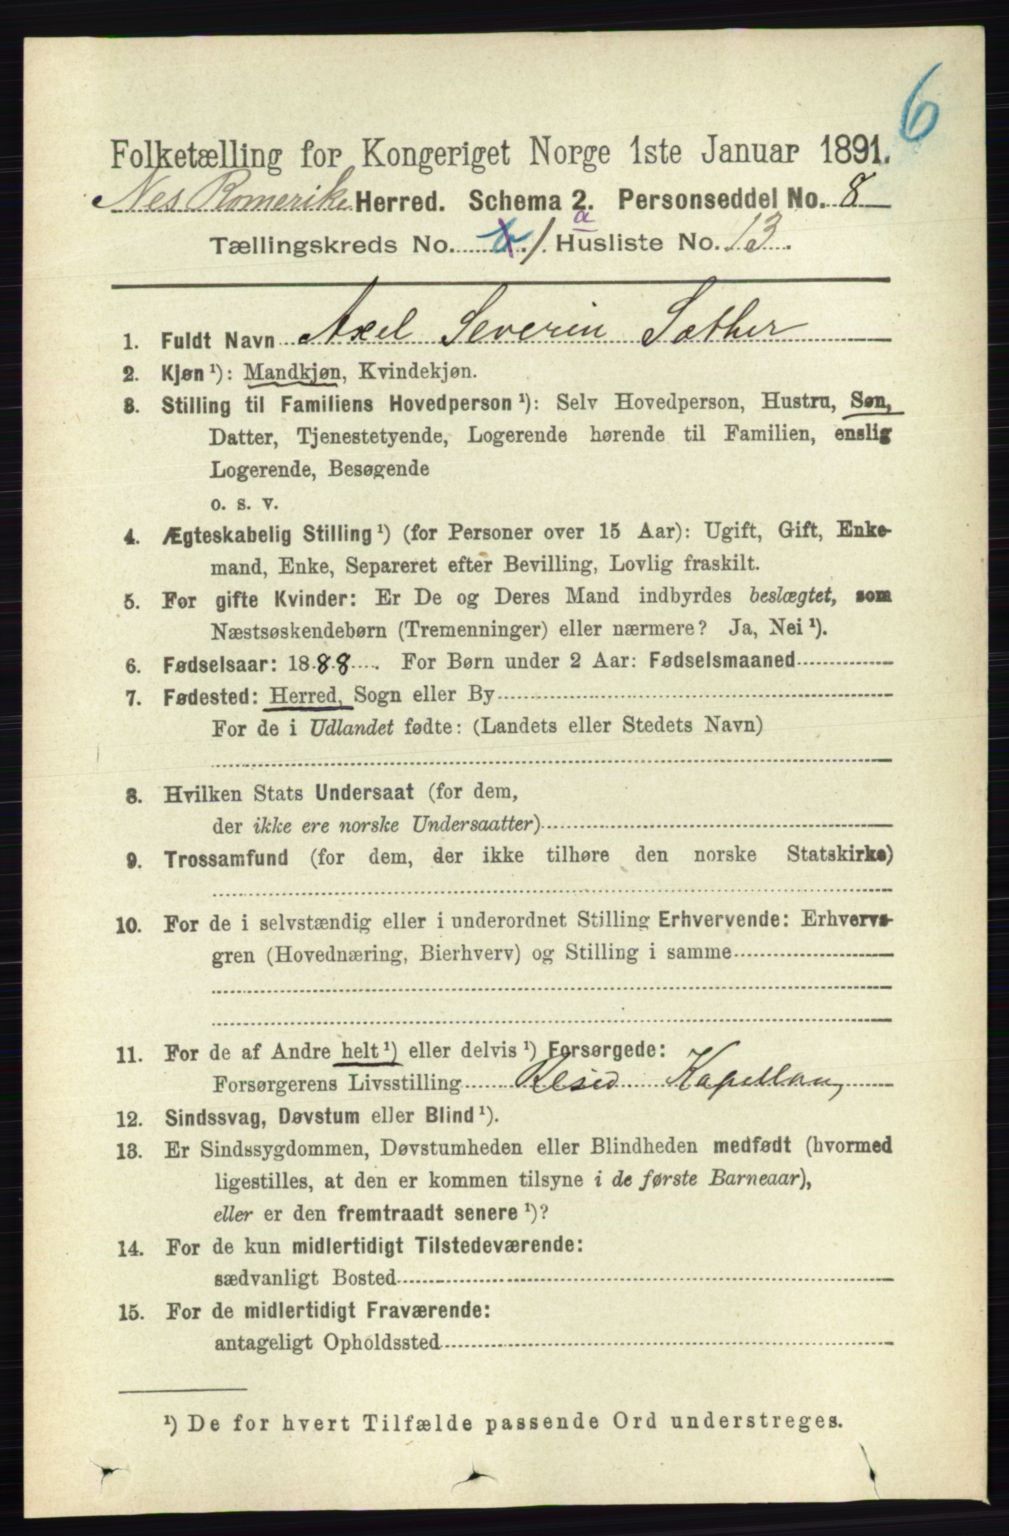 6
Folketælling for Kongeriget Norge 1ste Januar 1891.
Nes Romerike Herred. Schema 2. Personseddel No. 8
a
Tællingskreds No. 1 Husliste No. 13.
1. Fuldt Navn Axel Severin Sæther
2. Kjøn ¹): Mandkjøn, Kvindekjøn.
3. Stilling til Familiens Hovedperson ¹): Selv Hovedperson, Hustru, Søn,
Datter, Tjenestetyende, Logerende hørende til Familien, enslig
Logerende, Besøgende
o. s. v.
4. Ægteskabelig Stilling ¹) (for Personer over 15 Aar): Ugift, Gift, Enke-
mand, Enke, Separeret efter Bevilling, Lovlig fraskilt.
5. For gifte Kvinder: Er De og Deres Mand indbyrdes beslægtet, som
Næstsøskendebørn (Tremenninger) eller nærmere? Ja, Nei ¹).
6. Fødselsaar: 1888. For Børn under 2 Aar: Fødselsmaaned
7. Fødested: Herred, Sogn eller By
For de i Udlandet fødte: (Landets eller Stedets Navn)
8. Hvilken Stats Undersaat (for dem,
der ikke ere norske Undersaatter)
9. Trossamfund (for dem, der ikke tilhøre den norske Statskirke)
10. For de i selvstændig eller i underordnet Stilling Erhvervende: Erhvervs-
gren (Hovednæring, Bierhverv) og Stilling i samme
11. For de af Andre helt ¹) eller delvis ¹) Forsørgede:
Forsørgerens Livsstilling Resid Kapellan,
12. Sindssvag, Døvstum eller Blind ¹).
13. Er Sindssygdommen, Døvstumheden eller Blindheden medfødt (hvormed
ligestilles, at den er kommen tilsyne i de første Barneaar),
eller er den fremtraadt senere ¹)?
14. For de kun midlertidigt Tilstedeværende:
sædvanligt Bosted
15. For de midlertidigt Fraværende:
antageligt Opholdssted
¹) De for hvert Tilfælde passende Ord understreges.